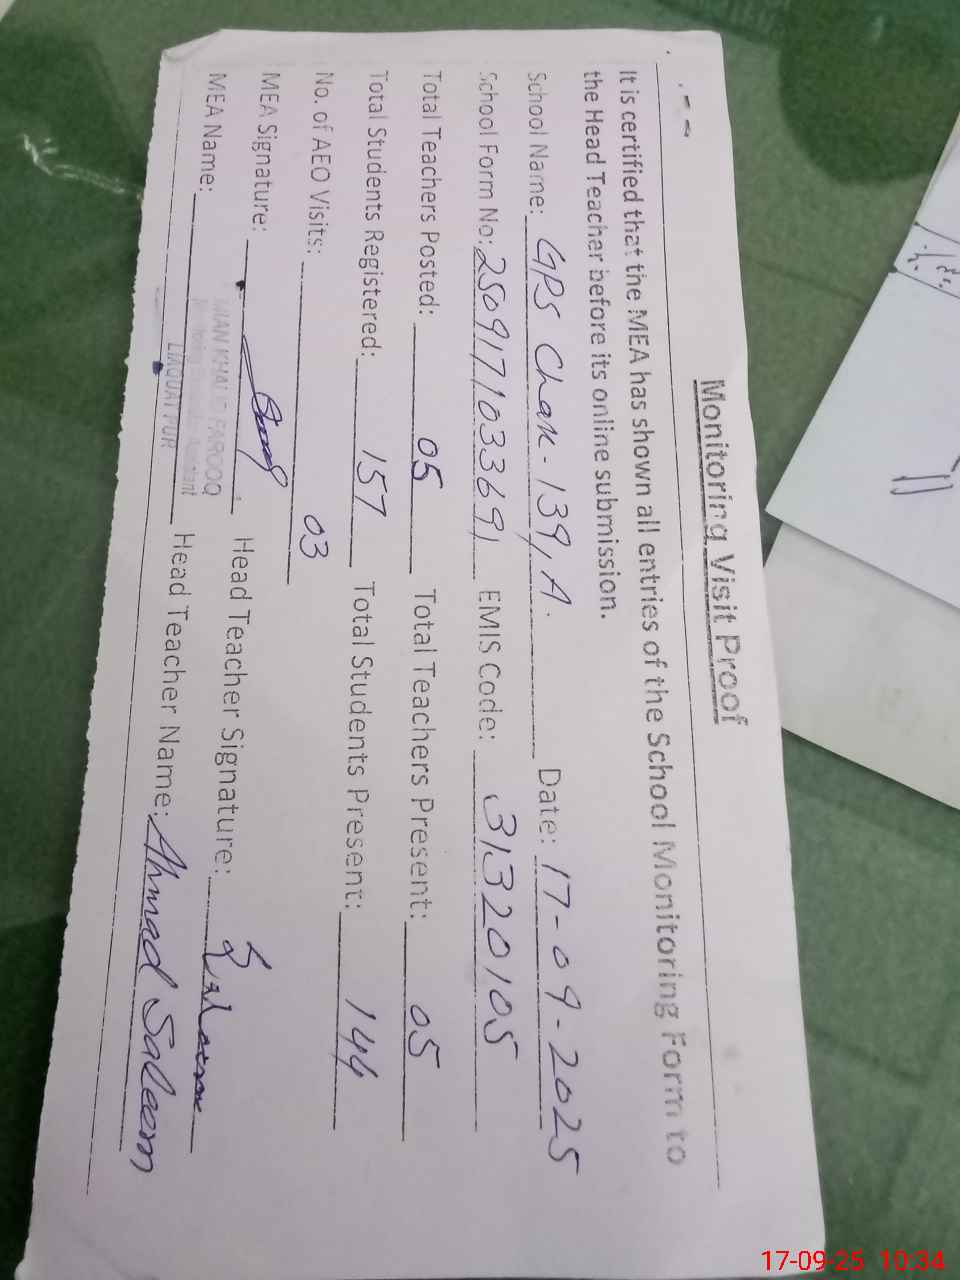 Monitoring Visit Proof
It is certified that the MEA has shown all entries of the School Monitoring Form to
the Head Teacher before its online submission.
School Name: GPS Chak-139,A. Date: 17-09-2025
School Form No: 2509171033691 EMIS Code: 31320105
Total Teachers Posted: 05 Total Teachers Present: 05
Total Students Registered: 157 Total Students Present: 144
No. of AEO Visits: 03
MEA Signature: Head Teacher Signature:
MIAN KHALID FAROOQ
MEA Name: Head Teacher Name: Ahmad Saleem
LIAQUATPUR
17-09-25 10:34